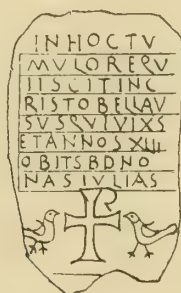 INHOCTV
MVLOREQV
IISCITINC
RISTOBELLAV
SVSQVIVIXS
ETANNOSXIII
OBITSBDNO
NASIVLIAS